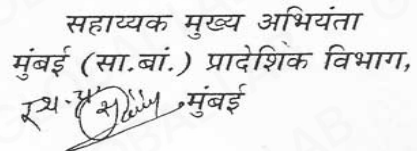 सहाय्यक मुख्य अभियंता
मुंबई (सा.बां.) प्रादेशिक विभाग,
मुंबई